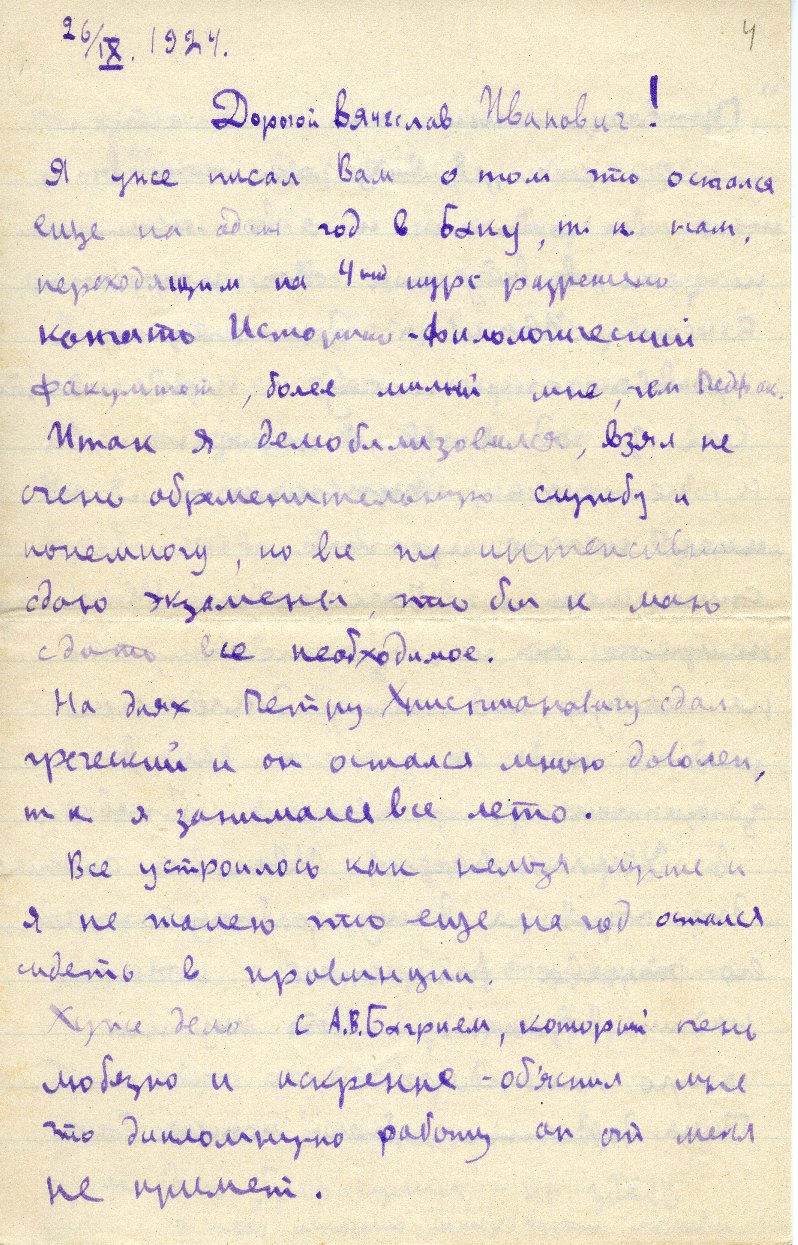 26/IX. 1924.
4
Дорогой Вячеслав Иванович!
Я уже писал Вам о том что остался
еще на один год в Баку, т. к. нам,
переходящим на 4ый курс разрешено
кончать Историко-филологический
факультет, более милый мне, чем Педфак.
Итак я демобилизовался, взял не
очень обременительную службу и
понемногу, но все же интенсивно
сдаю экзамены, что бы к маю
сдать все необходимое.
На днях Петру Христиановичу сдал
греческий и он остался мною доволен,
т к я занимался все лето.
Все устроилось как нельзя лучше и
я не жалею что еще на год остался
сидеть в провинции.
Хуже дело с А.В.Багрием, который очень
любезно и искренне - об'яснил мне
что дипломную работу он от меня
не примет.